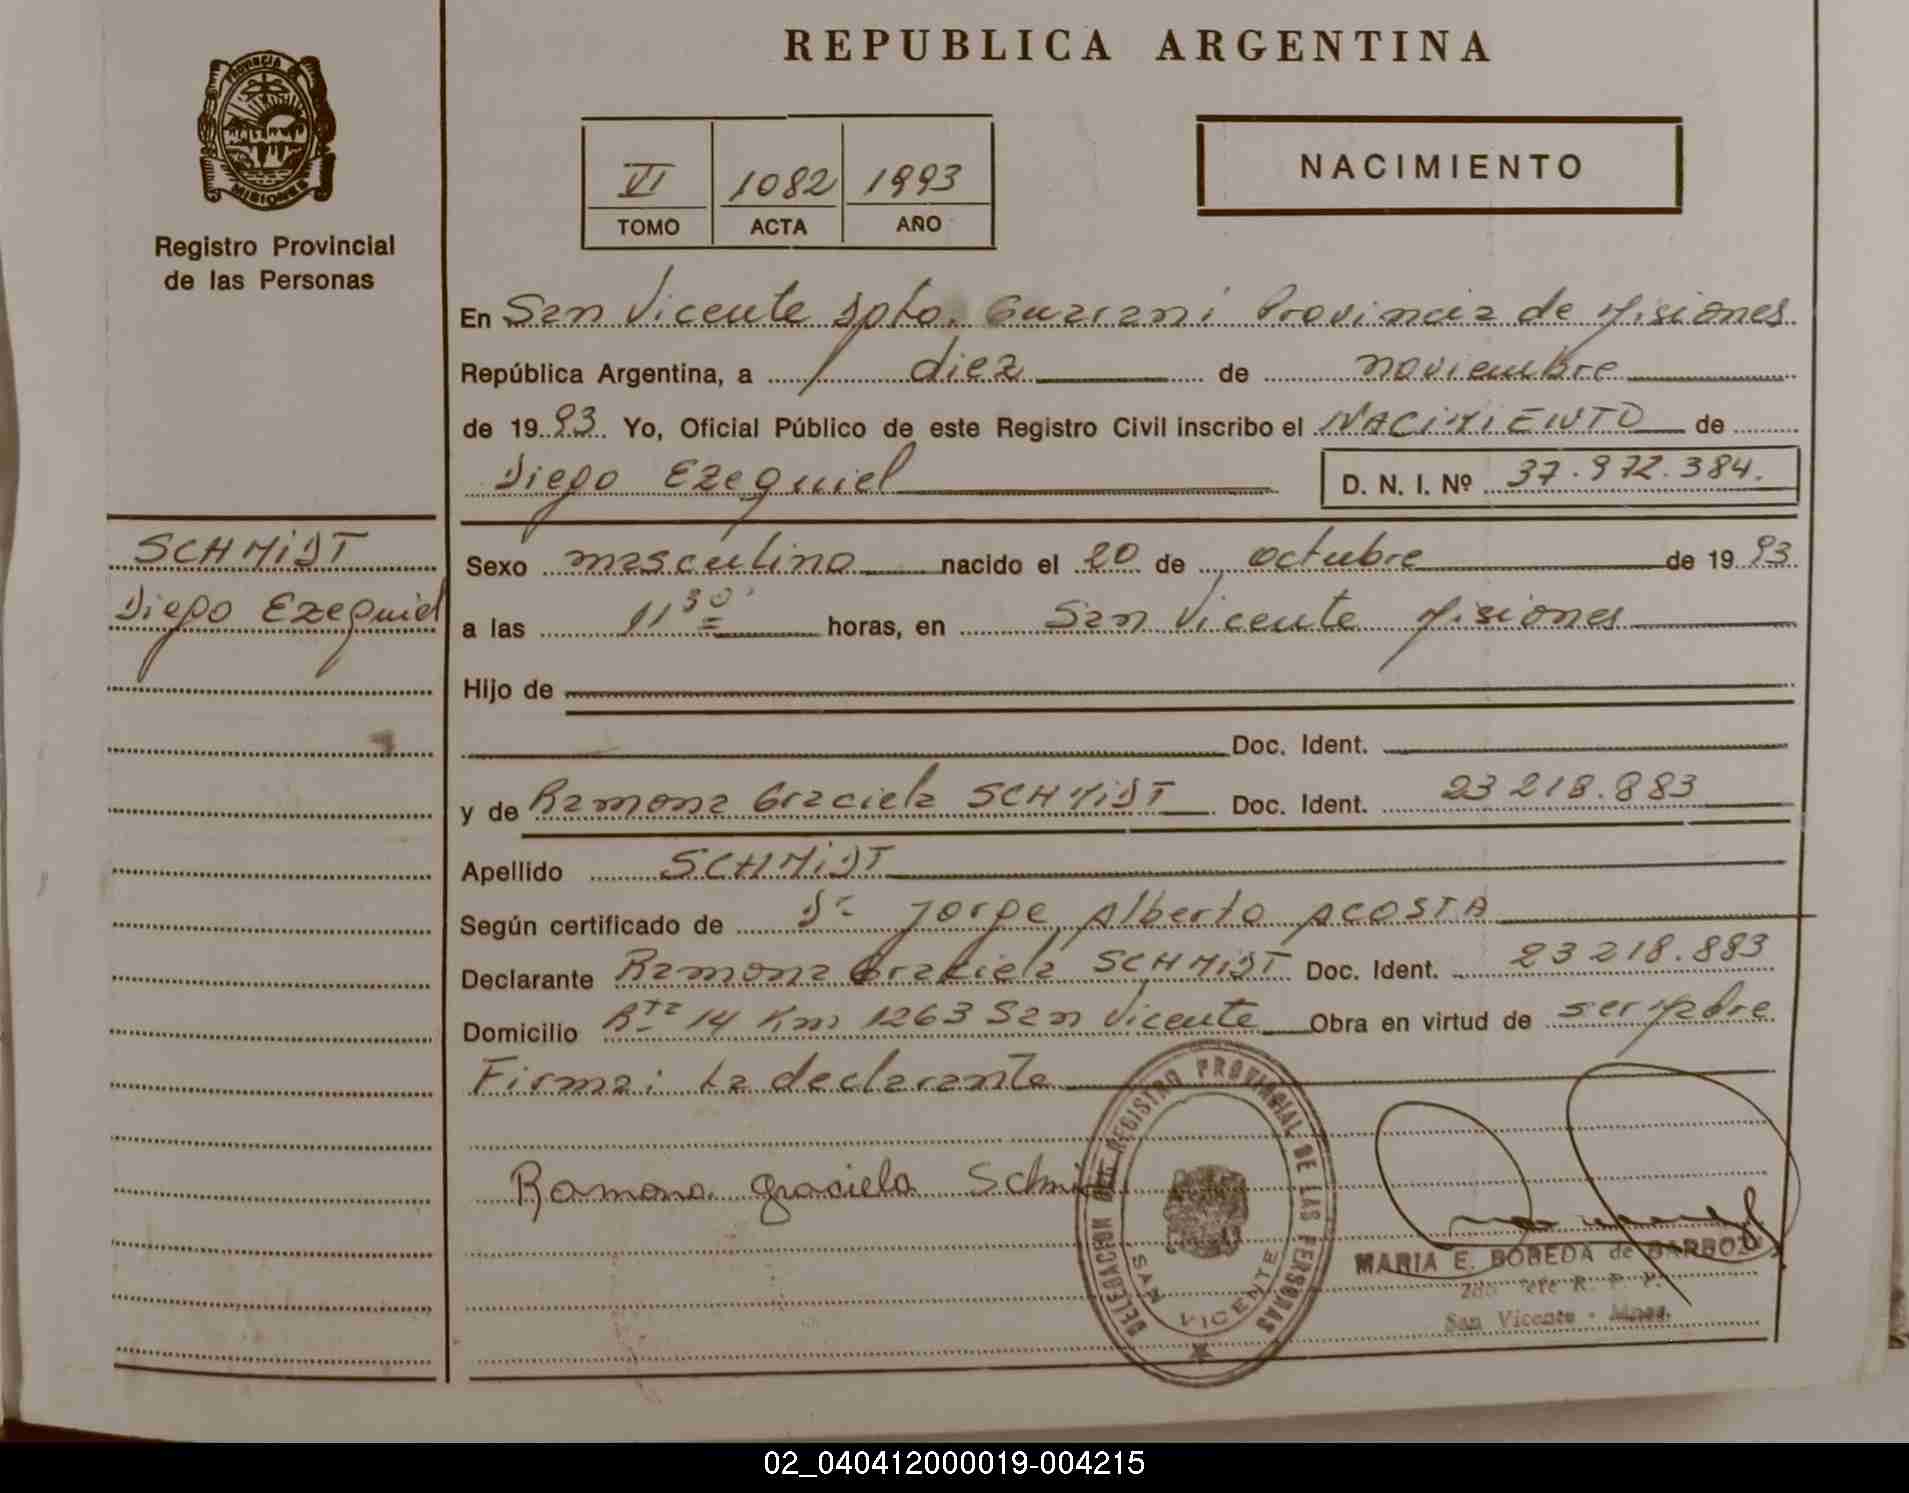 REPUBLICA ARGENTINA
PROVINCIA DE MISIONES
Registro Provincial
de las Personas
VI 1082 1993
TOMO ACTA AÑO
NACIMIENTO
En San Vicente Dpto. Guarani Provincia de Misiones
República Argentina, a diez de noviembre
de 1993 Yo, Oficial Público de este Registro Civil inscribo el NACIMIENTO de
Diego Ezequiel D. N. I. Nº 37.972.384.
SCHMIDT
Diego Ezequiel
Sexo masculino nacido el 20 de octubre de 1993
a las 11 30' horas, en San Vicente Misiones
Hijo de
Doc. Ident.
y de Ramona Graciela SCHMIDT Doc. Ident. 23 218.883
Apellido SCHMIDT
Según certificado de Dr Jorge Alberto ACOSTA
Declarante Ramona Graciela SCHMIDT Doc. Ident. 23 218.883
Domicilio Rta 14 Km 1263 San Vicente Obra en virtud de ser Madre
Firma: La declarante
Ramona graciela Schmi
DELEGACION DEL REGISTRO PROVINCIAL DE LAS PERSONAS
SAN VICENTE
MARIA E. BOBEDA de BARBOZA
San Vicente - Mnes.
02_040412000019-004215